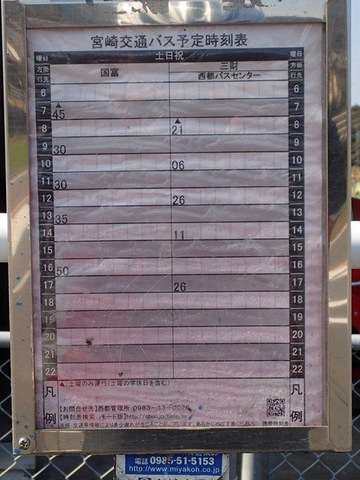 宮崎交通バス予定時刻表
曜日 土日祝 曜日
方面 国富 三財 方面
行先 西都バスセンター 行先
6 6
7 ▲45 7
8 ▲21 8
9 30 9
10 06 10
11 30 11
12 26 12
13 35 13
14 11 14
15 15
16 50 16
17 26 17
18 18
19 19
20 20
21 21
22 22
凡例 ▲:土曜のみ運行(土曜の学休日を含む) 凡例
【お問合せ先】西都営業所 0983-43-0026
【時刻表検索 iモード版】
電話 0985-51-5153
http://www.miyakoh.co.jp